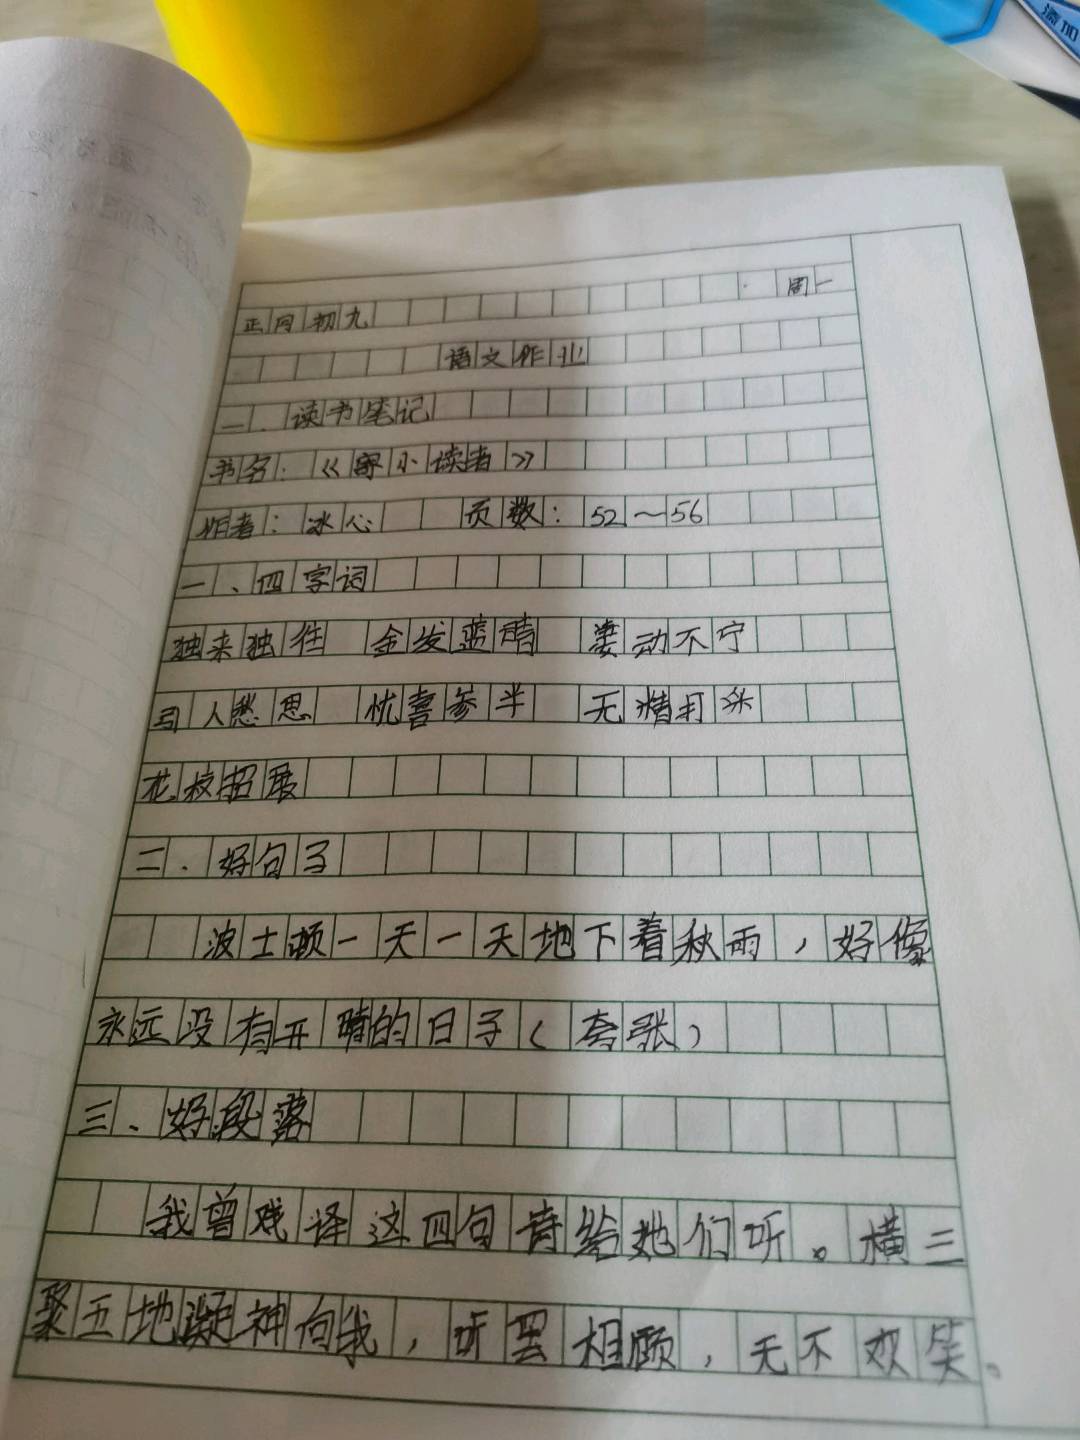 添加
周一
正月初九
语文作业
一、读书笔记
书名:《寄小读者》
作者:冰心 页数:52~56
一、四字词
独来独往 金发蓝睛 动不宁
引人愁思 忧喜参半 无精打采
花枝招展
二.好句子
波士顿一天一天地下着秋雨,好像
永远没有开晴的日子(夸张)
三、好段落
我曾戏译这四句诗给她们听。横三
聚五地凝神向我,听罢相顾,无不欢笑。